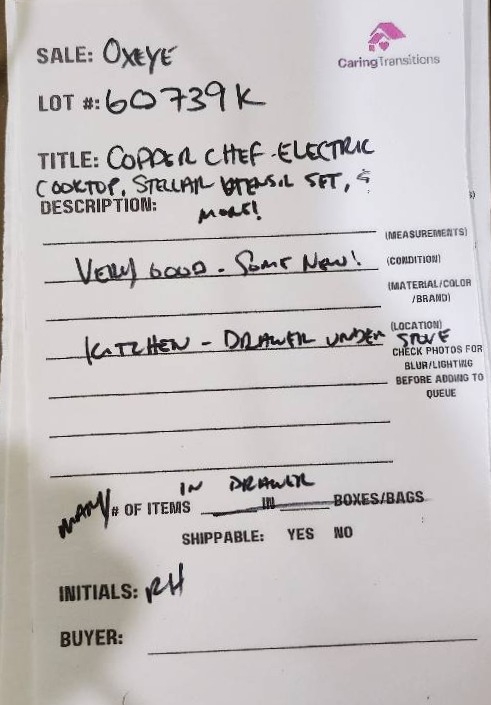 SALE: OXEYE
CaringTransitions
LOT #: 60739K
TITLE: COPPER CHEF-ELECTRIC
COOKTOP, STELLAR UTENSIL SET, &
DESCRIPTION: MORE!
(MEASUREMENTS)
VERY GOOD - SOME NEW! (CONDITION)
(MATERIAL/COLOR
/BRAND)
(LOCATION)
KITCHEN - DRAWER UNDER STOVE
CHECK PHOTOS FOR
BLUR/LIGHTING
BEFORE ADDING TO
QUEUE
IN DRAWER
MANY # OF ITEMS IN BOXES/BAGS
SHIPPABLE: YES NO
INITIALS: RH
BUYER: